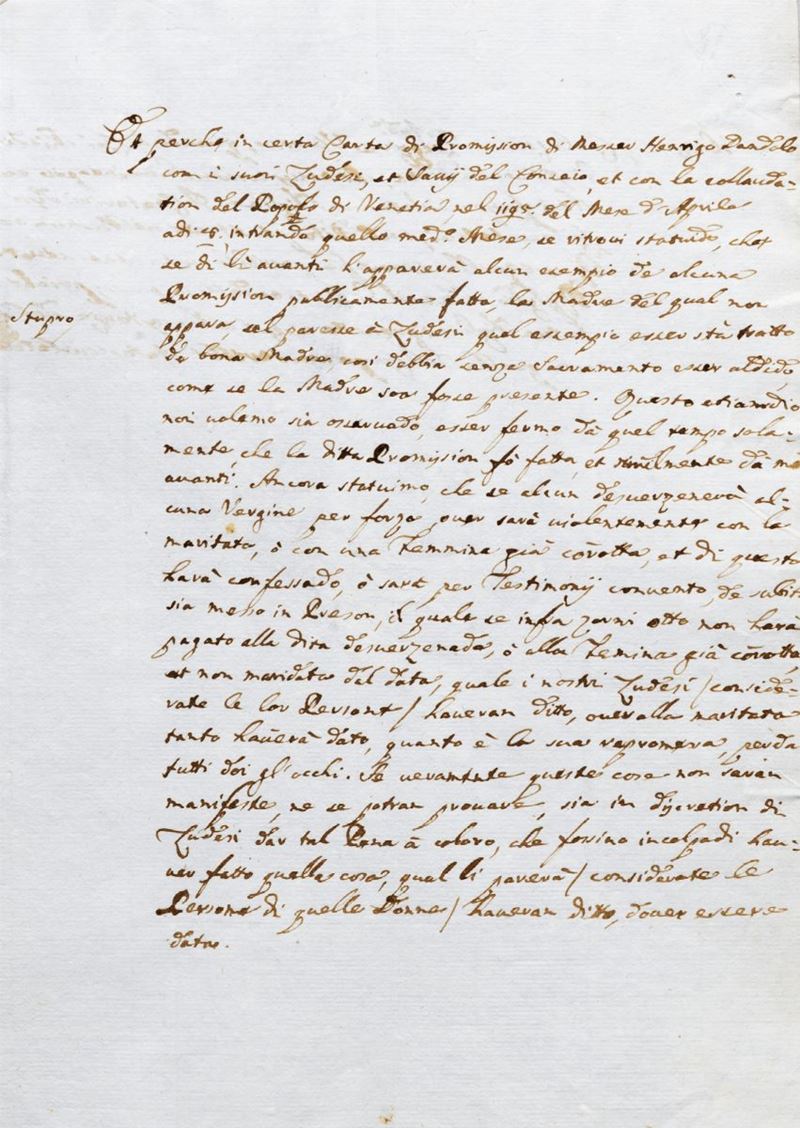 Et perche in certa Carta di Promission di Messer Henrigo Dandolo
com i suoi Zudesi, et Savij del Conseio, et con la collauda-
tion del Popolo di Venetia nel 1195. del Mese d'Aprile
adi intrando quello med.º Mese, se ritrovi statuido, che
se di li avanti l'apparerà alcun esempio de alcuna
Promission publicamente fatta, la Madre del qual non
appara, sel paresse à Zudesi quel essempio esser stà tratto
Stupro
da bona Madre, così debbia senza Sacramento esser aldido,
come se la Madre soa fosse presente. Questo etiamdio
noi volemo sia osservado, esser fermo dà quel tempo sola-
mente, che la ditta Promission fò fatta, et similmente dà mò
avanti. Ancora statuimo, che se alcun desverzenerà al-
cuna Vergine per forza, over sarà violentemente con la
maritata, ò con una Femmina già corrotta, et di questo
harà confessado, ò sarà per Testimonij convento, de subito
sia messo in Preson, il quale se infra zorni otto non harà
pagato alla dita desverzenada, ò alla Femina già corrotta,
et non maridata dal data, quale i nostri Zudesi / conside-
rate le lor Persone / haveran ditto, over alla maritata
tanto haverà dato, quanto è la sua repromessa, perda
tutti doi gl'occhi. Se veramente queste cose non saran
manifeste, ne se potran provare, sia in discretion di
Zudesi dar tal Pena à coloro, che fossino incolpadi hau-
ver fatto quella cosa, qual li parerà / considerate le
Persone di quelle Donne / haveran ditto, dover essere
data.